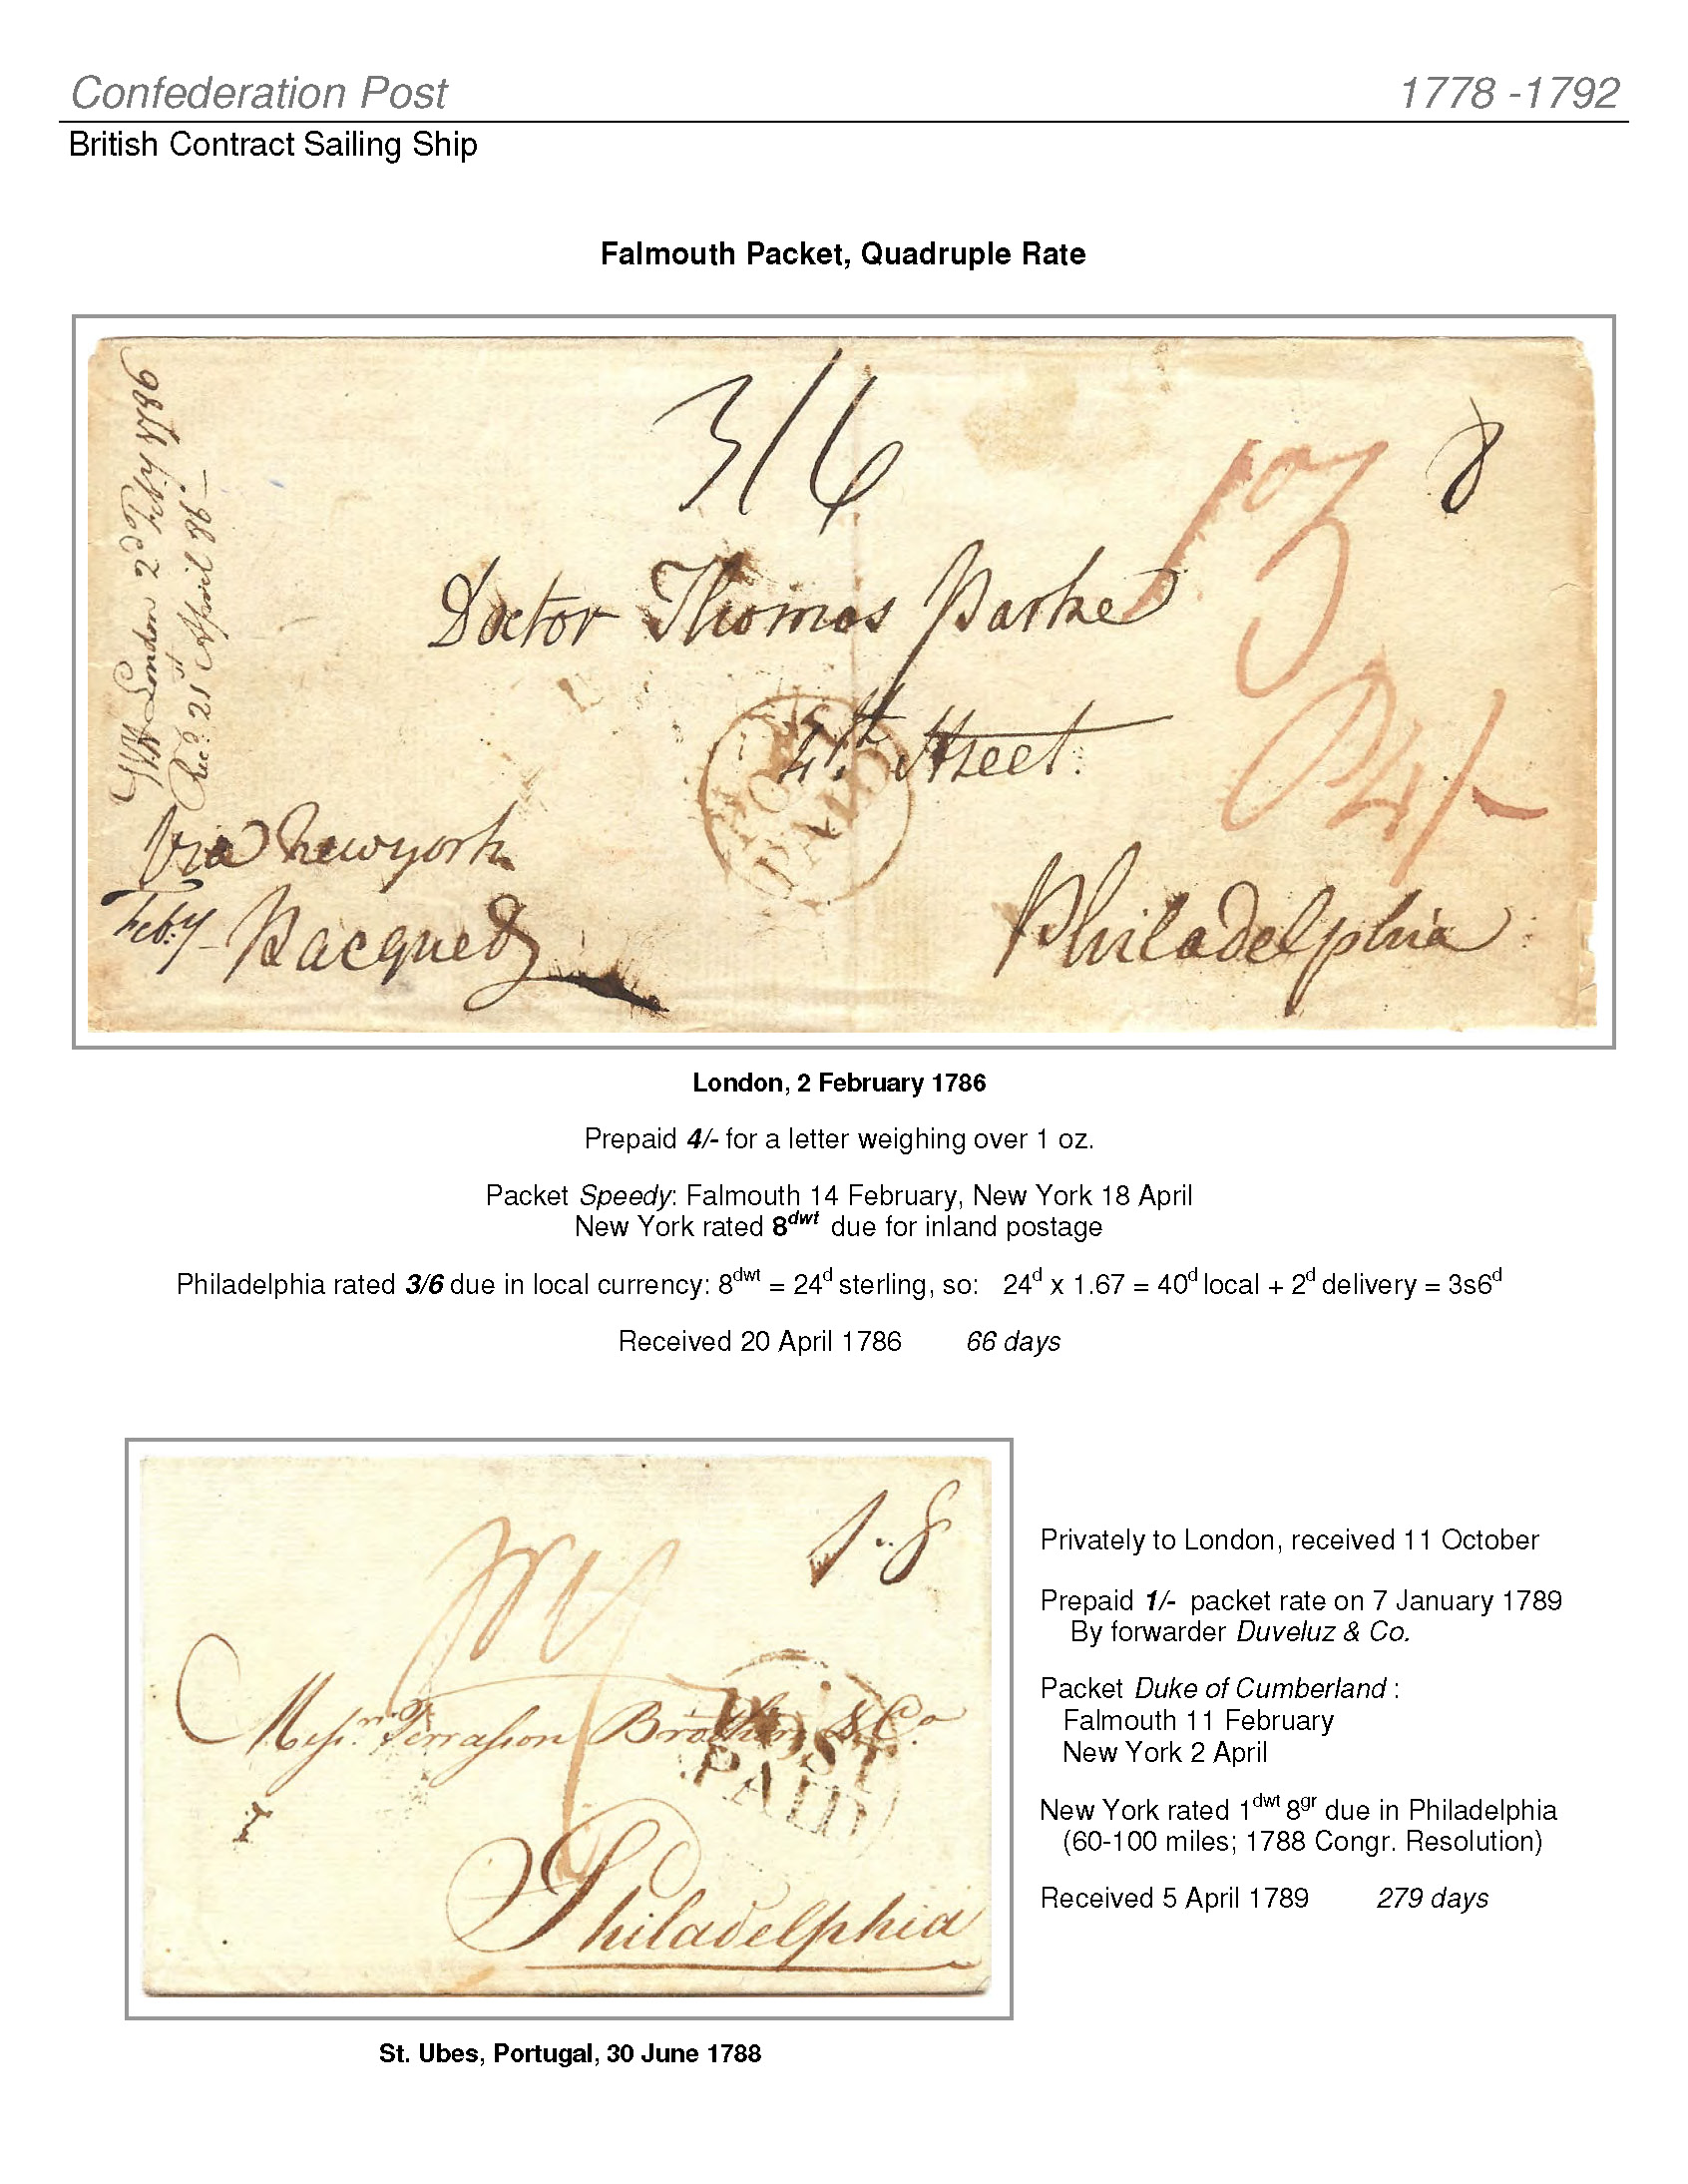 Confederation Post 1778 -1792
British Contract Sailing Ship
Falmouth Packet, Quadruple Rate
London 2d Feby 1786
Recd 21st April 86
3/6
8
Doctor Thomas Parke
4th Street
POST
PAID
P 4/-
Via Newyork
Feby Pacquet
Philadelphia
London, 2 February 1786
Prepaid 4/- for a letter weighing over 1 oz.
Packet Speedy: Falmouth 14 February, New York 18 April
New York rated 8dwt due for inland postage
Philadelphia rated 3/6 due in local currency: 8dwt = 24d sterling, so: 24d x 1.67 = 40d local + 2d delivery = 3s6d
Received 20 April 1786 66 days
1..8
Messrs Terrasson Brothers & Co.
POST
PAID
Philadelphia
St. Ubes, Portugal, 30 June 1788
Privately to London, received 11 October
Prepaid 1/- packet rate on 7 January 1789
By forwarder Duveluz & Co.
Packet Duke of Cumberland :
Falmouth 11 February
New York 2 April
New York rated 1dwt 8gr due in Philadelphia
(60-100 miles; 1788 Congr. Resolution)
Received 5 April 1789 279 days